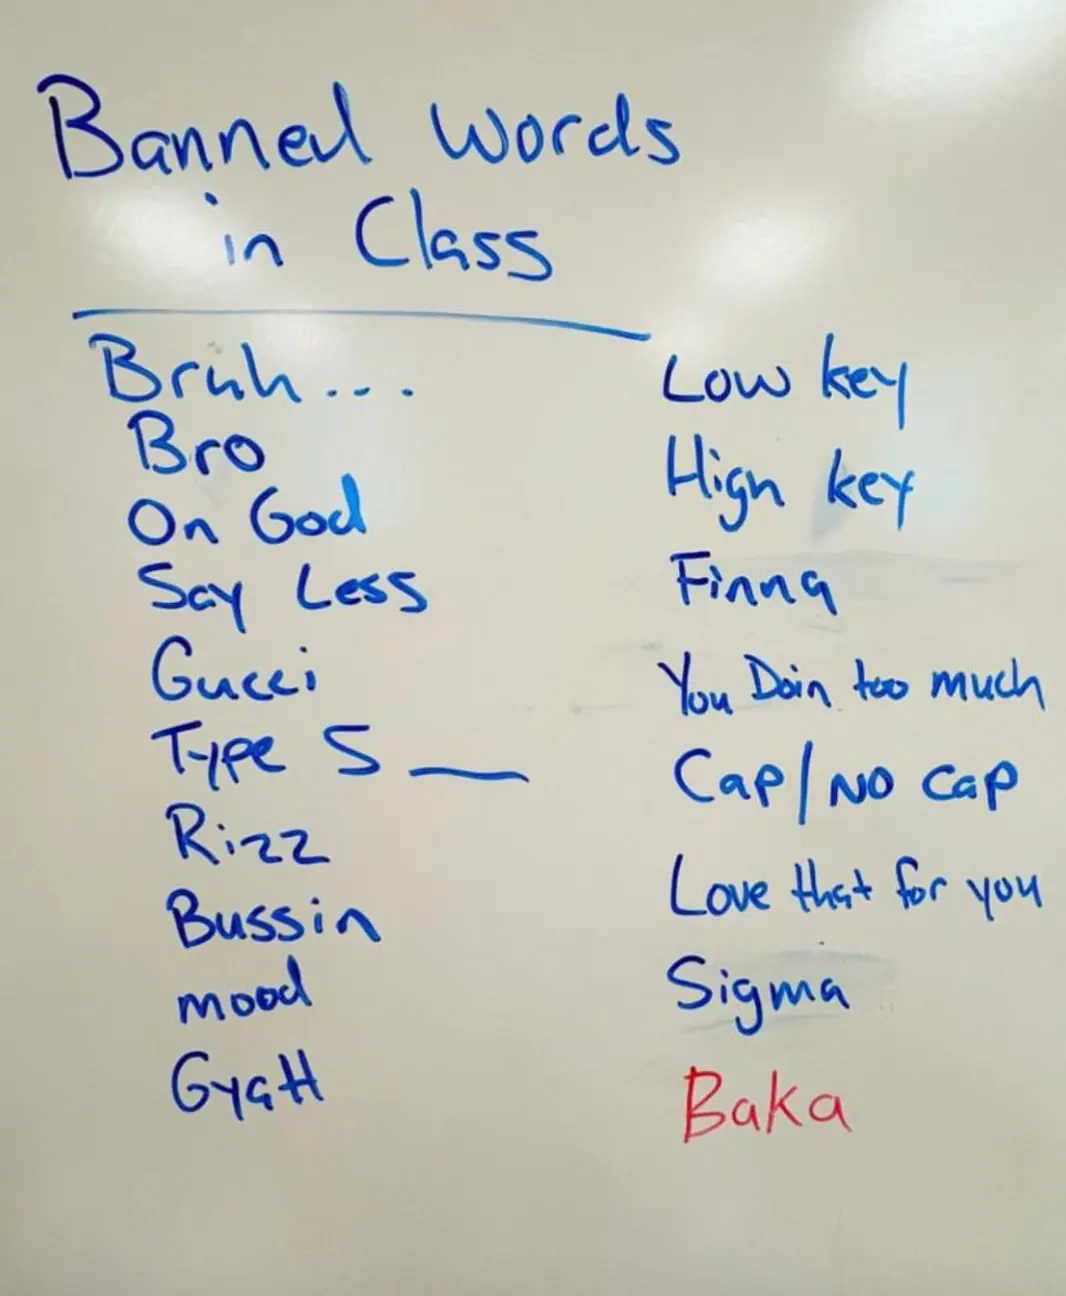 Banned words
in Class
Bruh...
Bro
On God
Say Less
Gucci
Type S __
Rizz
Bussin
mood
Gyatt
Low key
High key
Finna
You Doin too much
Cap/No cap
Love that for you
Sigma
Baka